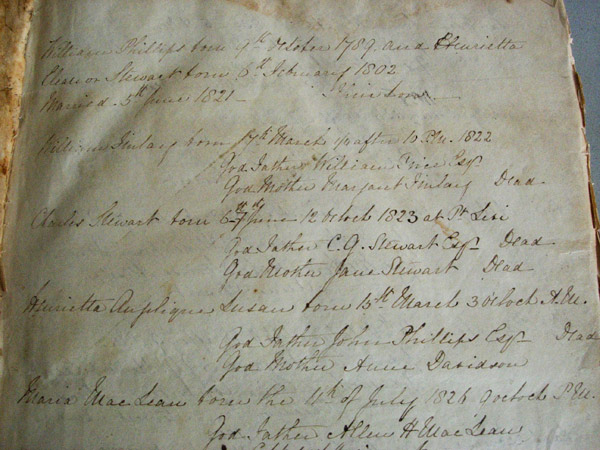 William Phillips born 9th October 1789 and Henrietta
Eleanor Stewart born 6th February 1802
Married 5th June 1821
William Finlay born 17th March ½ after 10 P.M. 1822
God Father William Price Esqr
God Mother Margaret Finlay Dead
Charles Stewart born June 12 Oclock 1823 at Pt Levi
God Father C. G. Stewart Esqr Dead
God Mother Jane Stewart Dead
Henrietta Susan born 15th March 3 oclock A.M.
God Father John Phillips Esqr Dead
God Mother Anne Davidson
Maria Mac Lean born the of July 1826 9 oclock P.M.
God Father Allen H Mac Lean